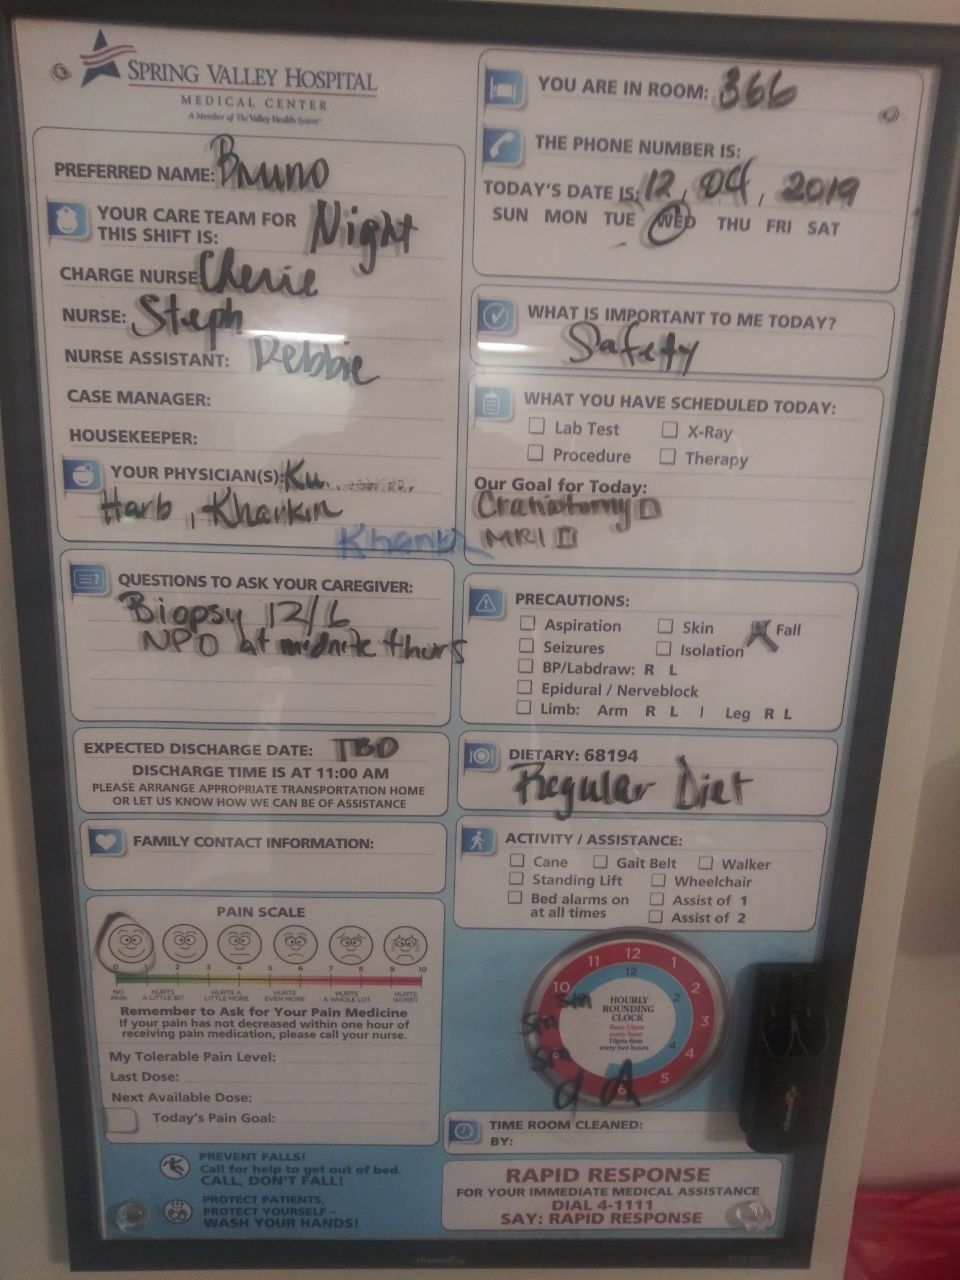 SPRING VALLEY HOSPITAL
MEDICAL CENTER
A Member of The Valley Health System
PREFERRED NAME: Bruno
YOUR CARE TEAM FOR
THIS SHIFT IS: Night
CHARGE NURSE Cherie
NURSE: Steph
NURSE ASSISTANT: Debbie
CASE MANAGER:
HOUSEKEEPER:
YOUR PHYSICIAN(S): Ku
Harb, Kharkin
QUESTIONS TO ASK YOUR CAREGIVER:
Biopsy 12/6
NPO at midnite thurs
EXPECTED DISCHARGE DATE: TBD
DISCHARGE TIME IS AT 11:00 AM
PLEASE ARRANGE APPROPRIATE TRANSPORTATION HOME
OR LET US KNOW HOW WE CAN BE OF ASSISTANCE
FAMILY CONTACT INFORMATION:
PAIN SCALE
0 1 2 3 4 5 6 7 8 9 10
NO PAIN HURTS A LITTLE BIT HURTS A LITTLE MORE HURTS EVEN MORE HURTS A WHOLE LOT HURTS WORST
Remember to Ask for Your Pain Medicine
If your pain has not decreased within one hour of
receiving pain medication, please call your nurse.
My Tolerable Pain Level:
Last Dose:
Next Available Dose:
Today's Pain Goal:
PREVENT FALLS!
Call for help to get out of bed.
CALL, DON'T FALL!
PROTECT PATIENTS,
PROTECT YOURSELF –
WASH YOUR HANDS!
YOU ARE IN ROOM: 366
THE PHONE NUMBER IS:
TODAY'S DATE IS: 12, 04, 2019
SUN MON TUE WED THU FRI SAT
WHAT IS IMPORTANT TO ME TODAY?
Safety
WHAT YOU HAVE SCHEDULED TODAY:
Lab Test X-Ray
Procedure Therapy
Our Goal for Today:
Craniotomy
MRI
PRECAUTIONS:
Aspiration Skin Fall
Seizures Isolation
BP/Labdraw: R L
Epidural / Nerveblock
Limb: Arm R L | Leg R L
DIETARY: 68194
Regular Diet
ACTIVITY / ASSISTANCE:
Cane Gait Belt Walker
Standing Lift Wheelchair
Bed alarms on Assist of 1
at all times Assist of 2
11 12 1
12
10 2
2
3
4
4
5
6
HOURLY
ROUNDING
CLOCK
6am-10pm
every hour
10pm-6am
every two hours
sm
sm
sm
TIME ROOM CLEANED:
BY:
RAPID RESPONSE
FOR YOUR IMMEDIATE MEDICAL ASSISTANCE
DIAL 4-1111
SAY: RAPID RESPONSE